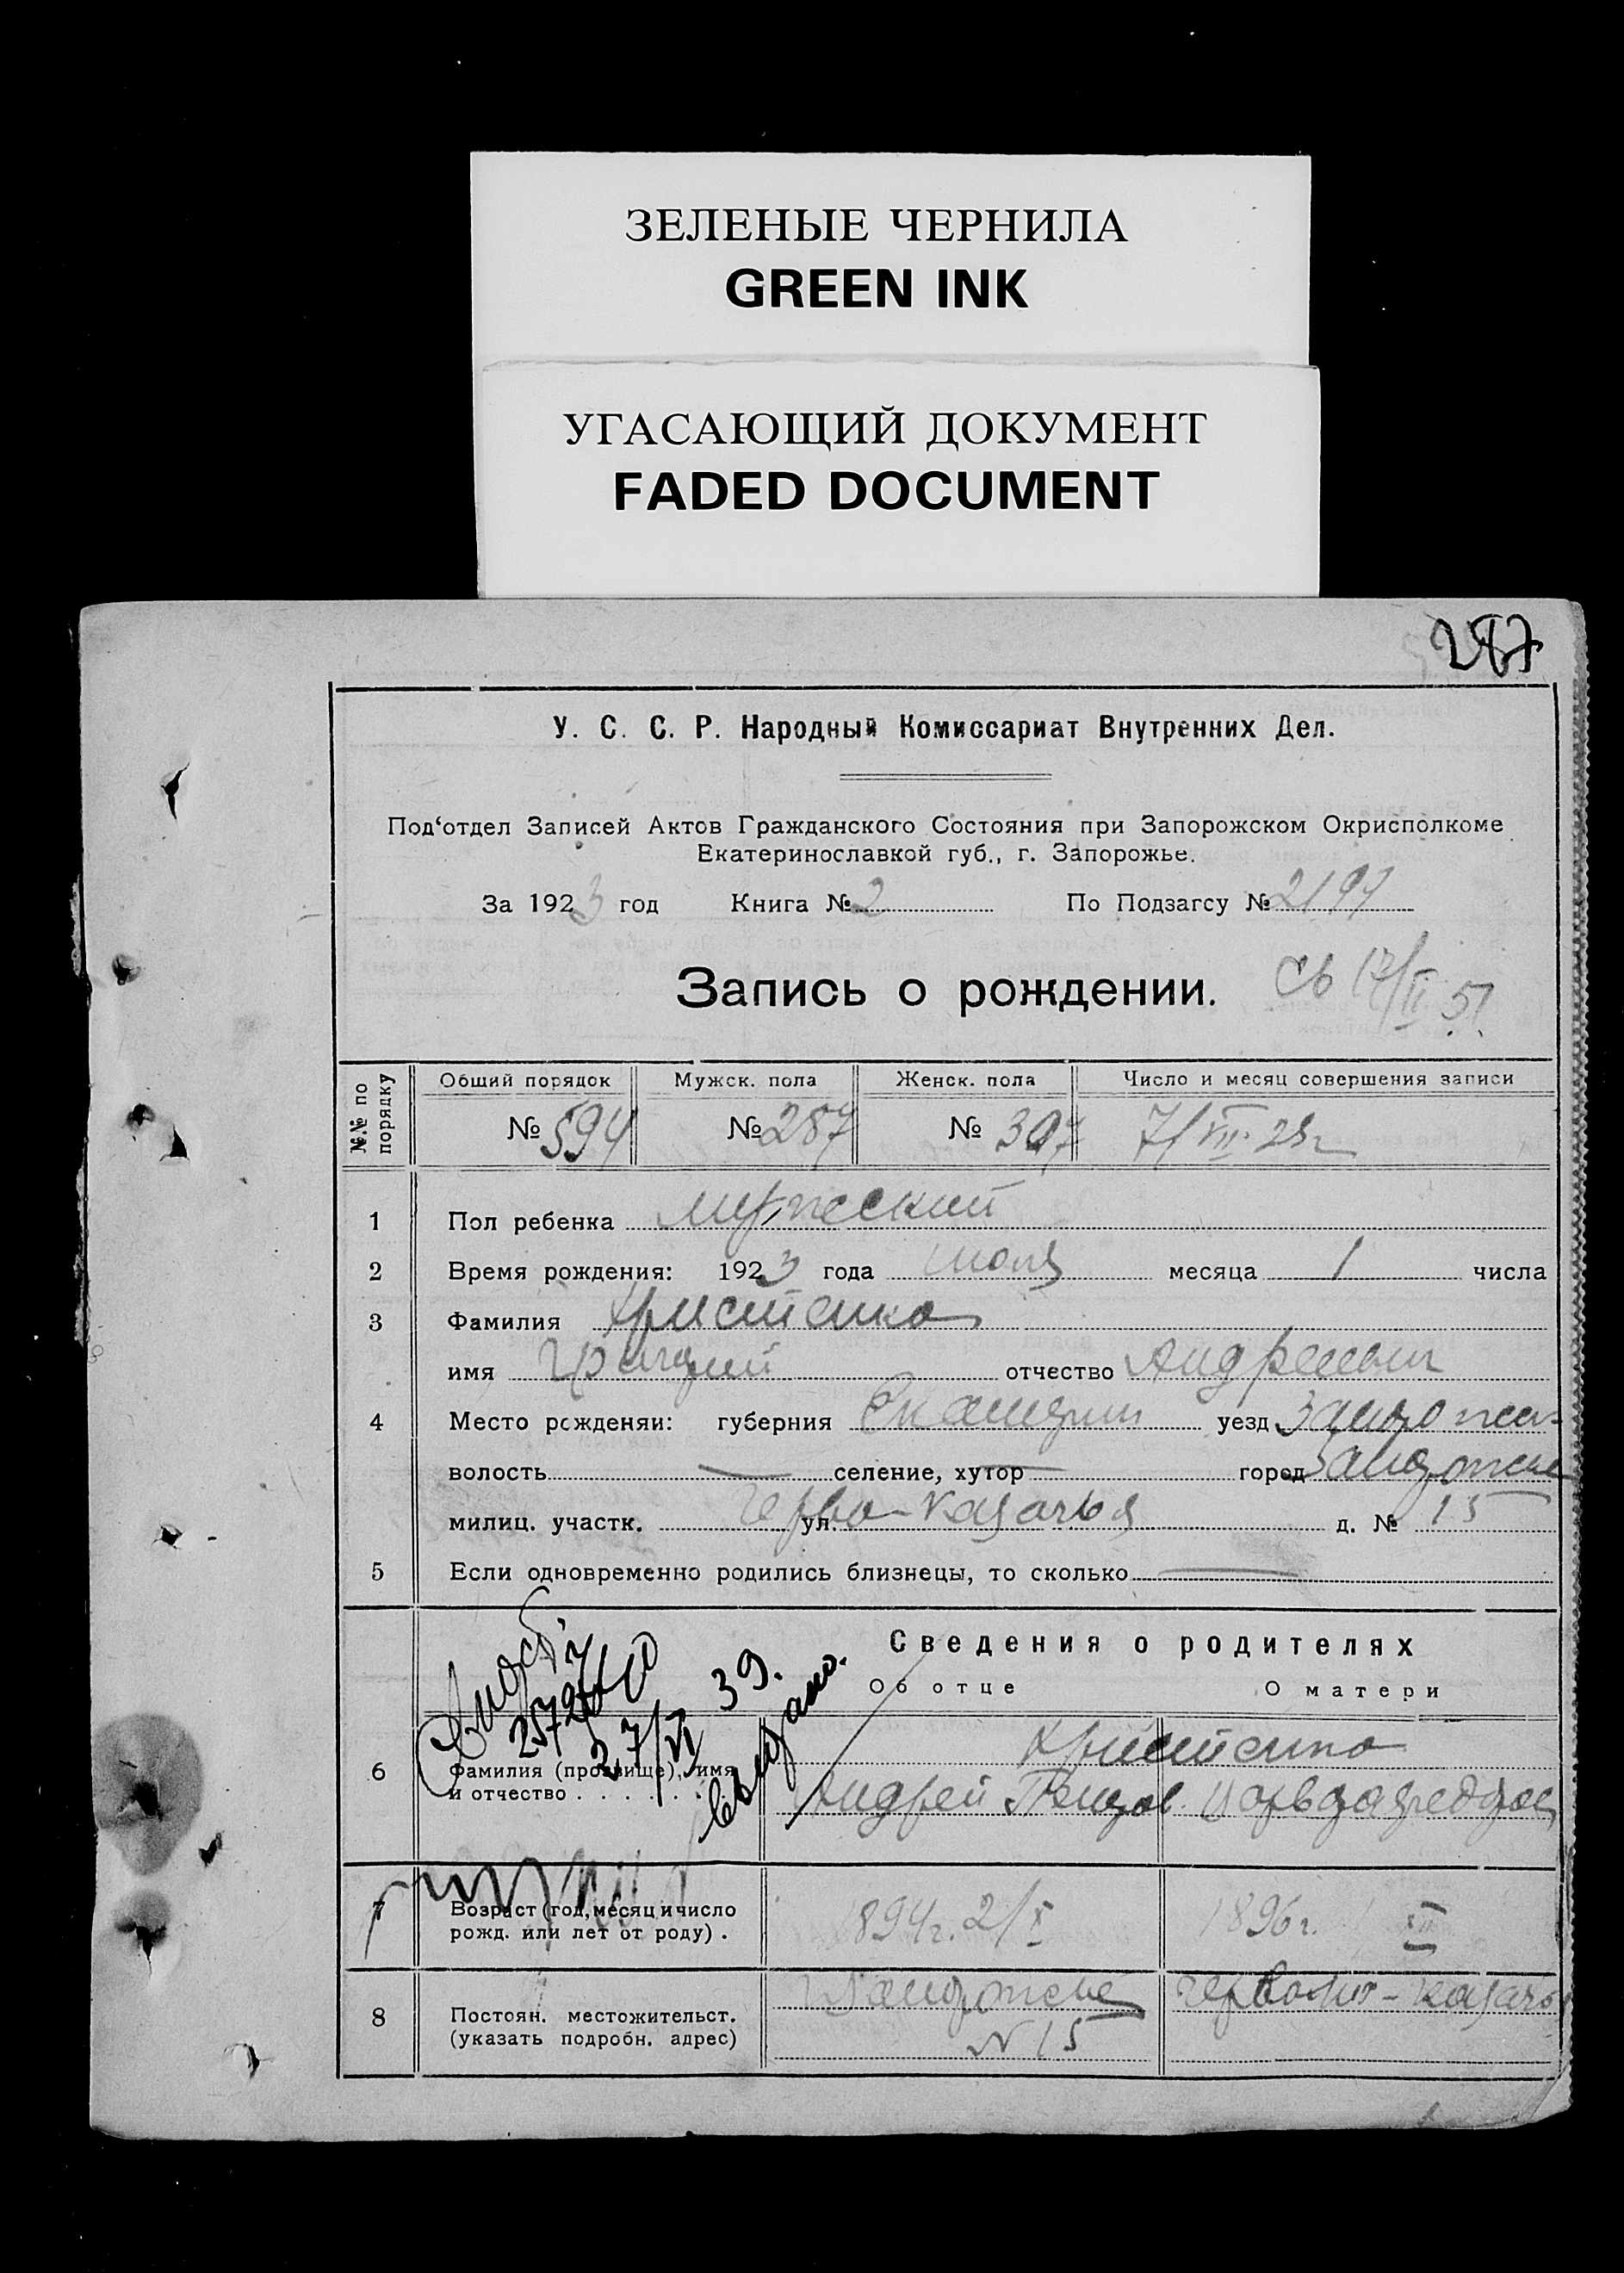 ЗЕЛЕНЫЕ ЧЕРНИЛА
GREEN INK
УГАСАЮЩИЙ ДОКУМЕНТ
FADED DOCUMENT
У. С. С. Р. Народный Комиссариат Внутренних Дел.
Под‘отдел Записей Актов Гражданского Состояния при Запорожском Окрисполкоме
Екатеринославкой губ., г. Запорожье.
За 1923 год Книга № 2 По Подзагсу № 2197
Запись о рождении.
№.№ по порядку
Общий порядок Мужск. пола Женск. пола Число и месяц совершения записи
№ 594 № 287 № 307 7/VII-23г
1 Пол ребенка мужеский
2 Время рождения: 1923 года июля месяца 1 числа
3 Фамилия Христенко
имя отчество Андреевич
4 Место рсжденяи: губерния уезд
волость селение, хутор город
милиц. участк. ул. д. № 15
5 Если одновременно родились близнецы, то сколько
Сведения о родителях
Об отце О матери
27/VI 39.
выдано.
Христенко
6 Фамилия (прозвище), имя
и отчество Андрей
7 Возраст (год, месяц и число
рожд. или лет от роду) . 1894г. 2/X 1896г.
8 Постоян. местожительст.
(указать подробн. адрес)
N 15